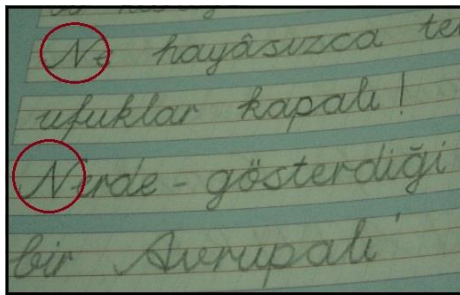 Ne hayâsızca
ufuklar kapalı!
Nirde - gösterdiği
bir Avrupalı'